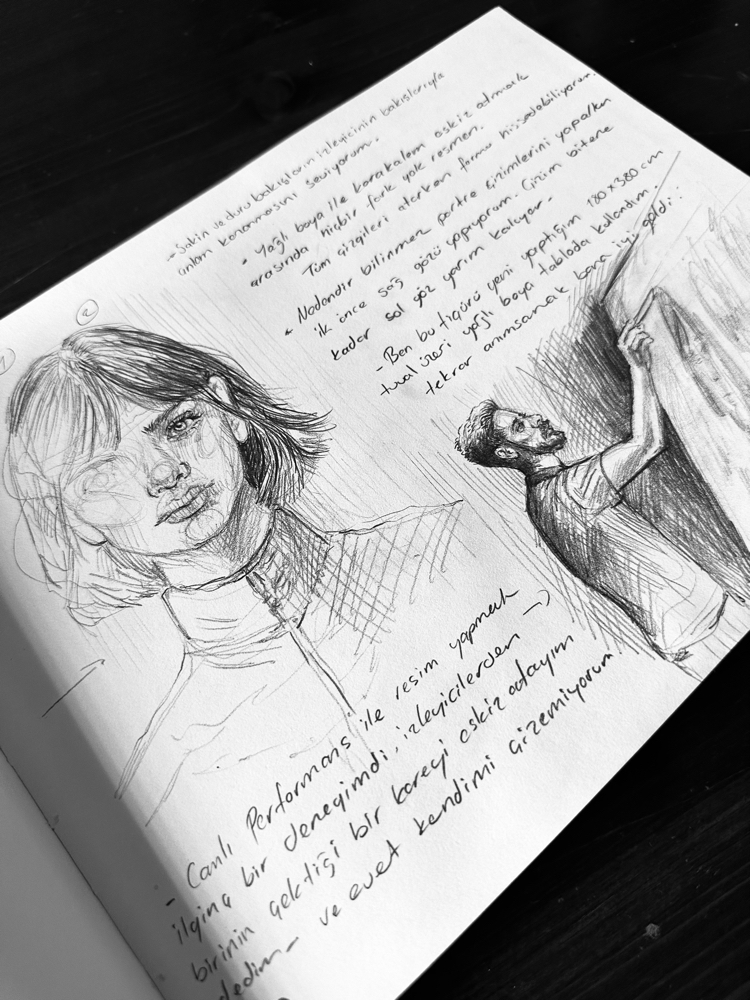 - Sakin ve duru bakışların izleyicinin bakışlarıyla
anlam kazanmasını seviyorum.
• Yağlı boya ile karakalem eskiz atmak
arasında hiçbir fark yok resmen.
Tüm çizgileri atarken formu hissedebiliyorum.
• Nedendir bilinmez portre çizimlerini yaparken
ilk önce sağ gözü yapıyorum. Çizim bitene
kadar sol göz yarım kalıyor.
- Ben bu figürü yeni yaptığım 180x380 cm
tuval üzeri yağlı boya tabloda kullandım.
tekrar anımsamak bana iyi geldi :
1
2
- Canlı Performans ile resim yapmak
ilginç bir deneyimdi, izleyicilerden →
birinin çektiği bir kareyi eskiz atayım
dedim - ve evet kendimi çizemiyorum